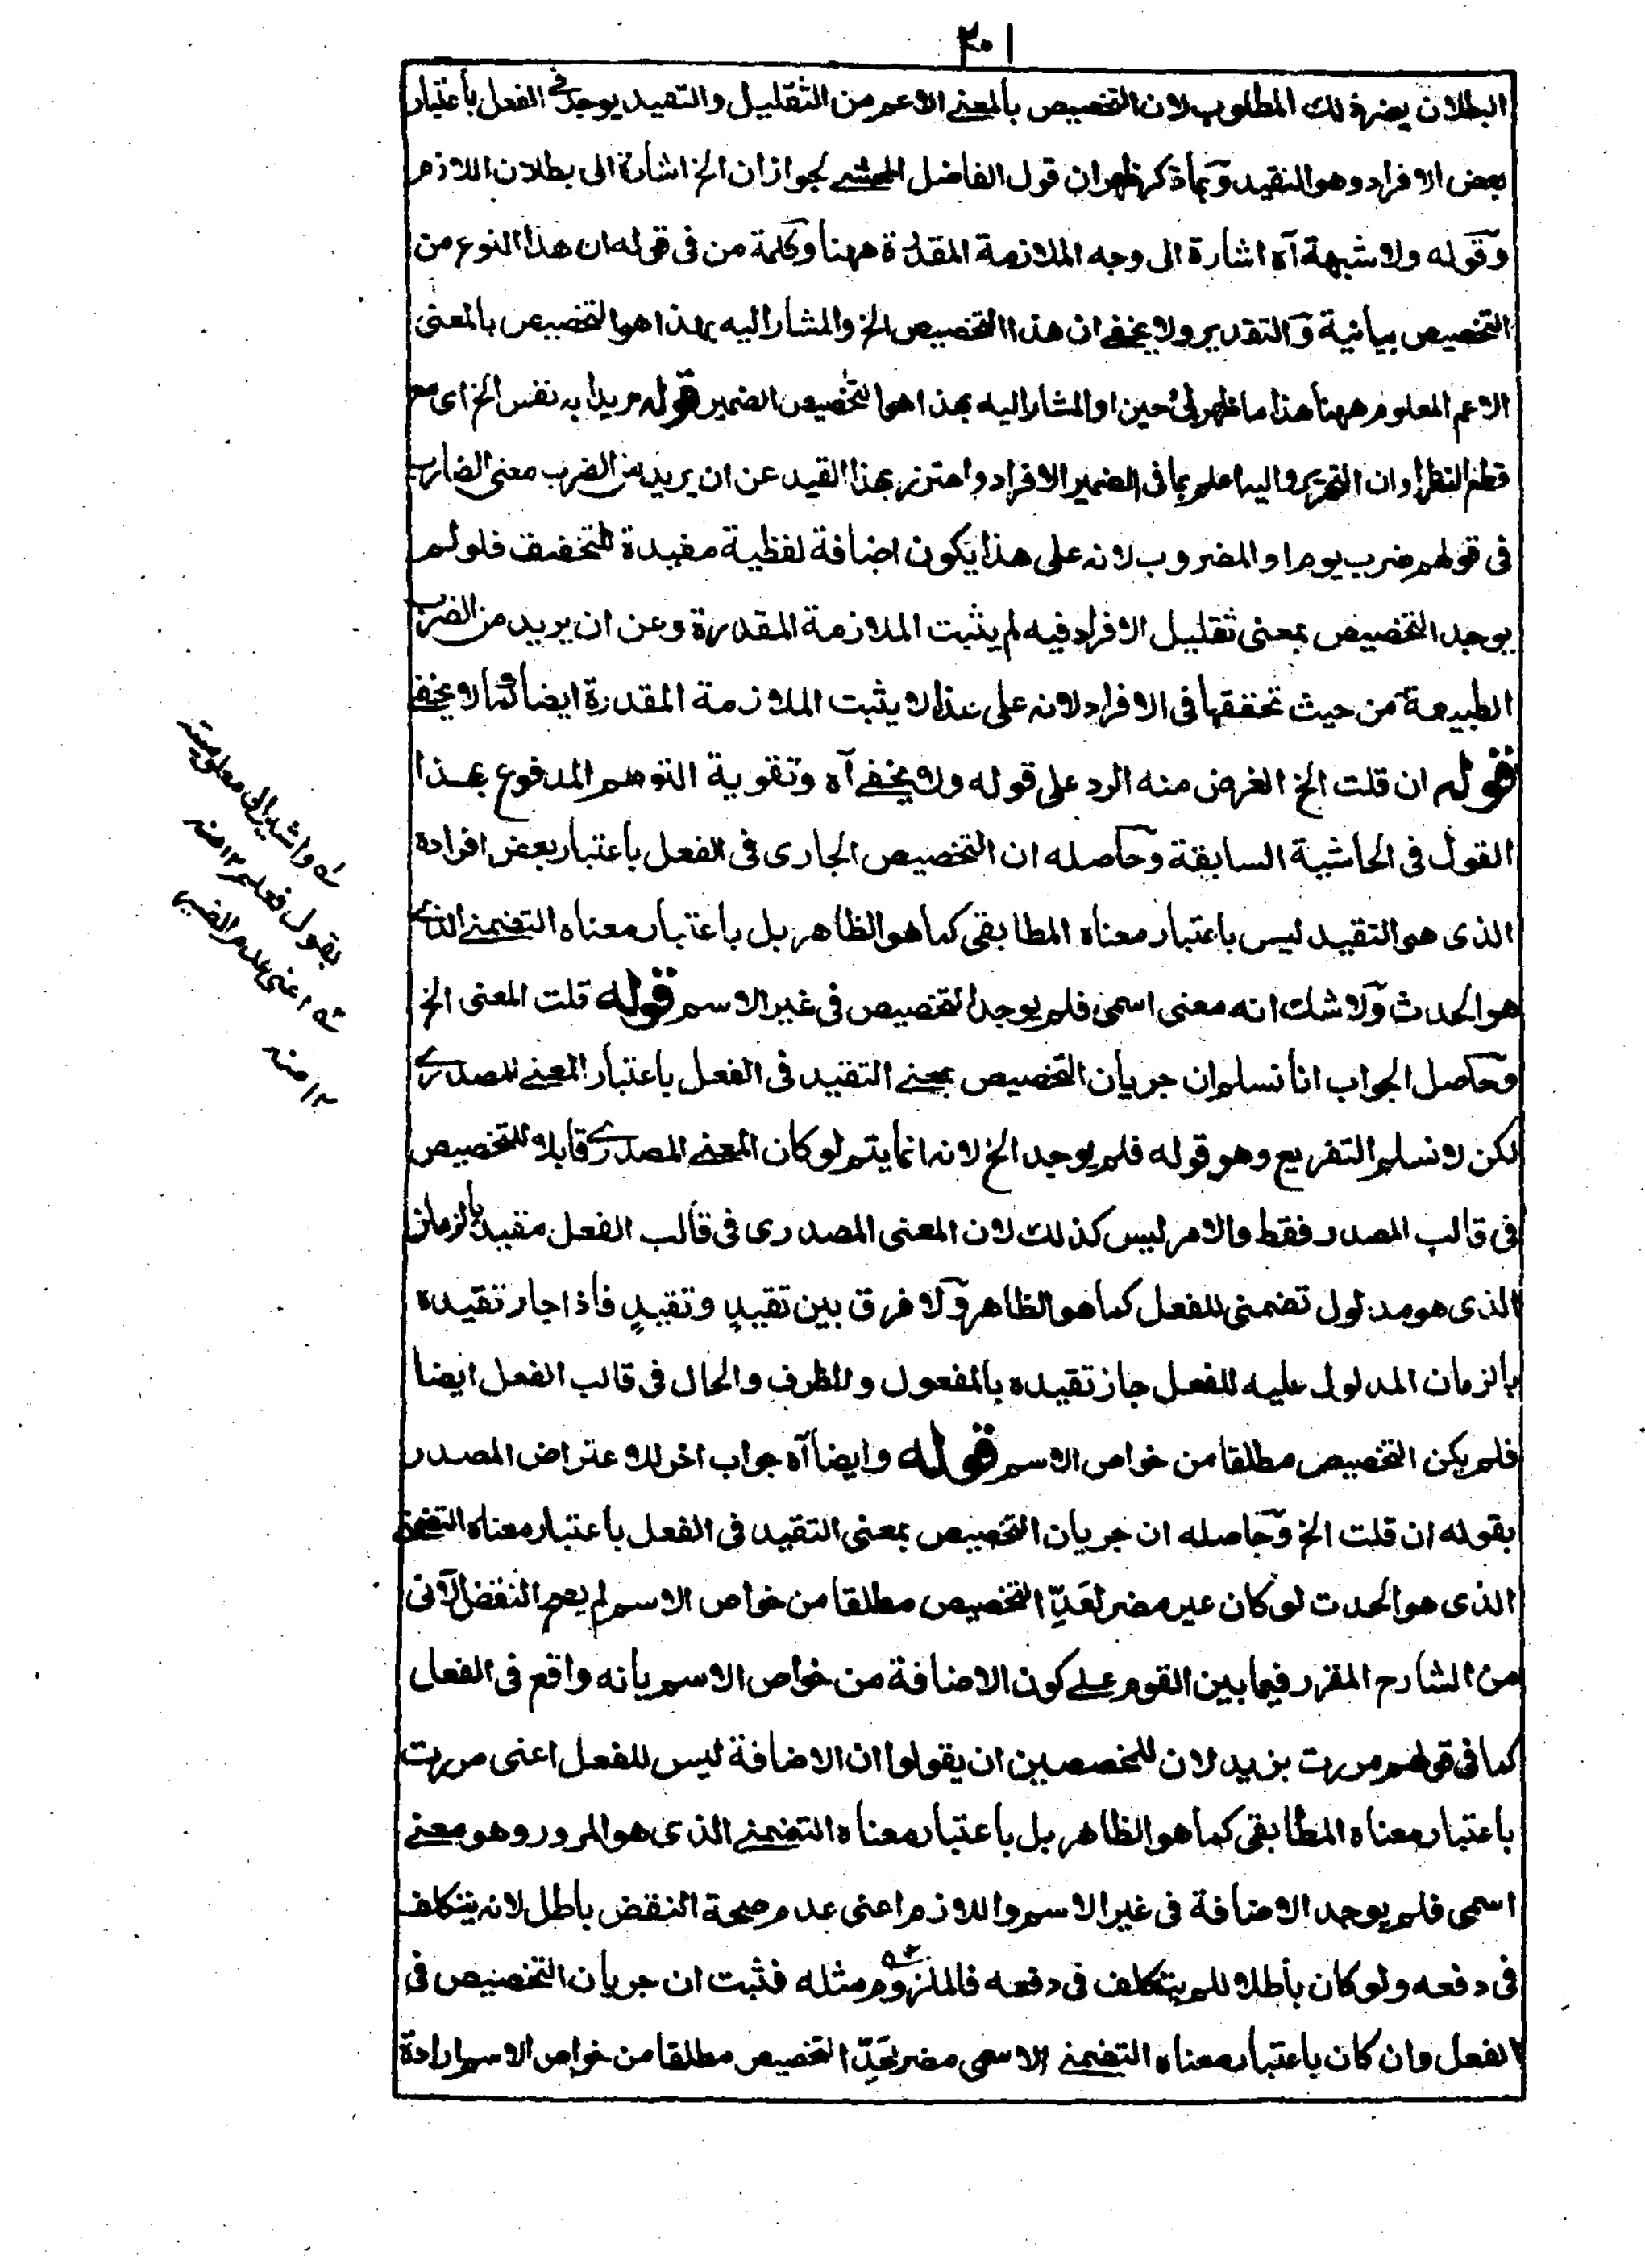 ٣٠١
البطلان يضر ذلك المطلوب لان التخصيص بالمعنے الاعم من التقليل والتقييد يوجد فى الفعل باعتبار
بعض الافراد وهو التقييد وبما ذكر ظهر ان قول الفاضل المحشے لجواز ان الخ اشارة الى بطلان اللازم
وقوله ولا شبهة آه اشارة الى وجه الملازمة المقدرة ههنا وكلمة من فى قوله ان هذا النوع من
التخصيص بيانية والتقدير ولا يخفے ان هذا التخصيص الخ والمشار اليه بهذا هو التخصيص بالمعنى
الاعم المعلوم ههنا هذا ما ظهر لى حين او المشار اليه بهذا هو التخصيص الضمير قوله مريدا به نفس الخ اى مع
قطع النظر وان اعلم بما فى الضمير الافراد واحترز بهذا القيد عن ان يريد من الضرب معنى الضارب
فى قولهم ضرب يوم او المضروب لانه على هذا يكون اضافة لفظية مفيدة للتخفيف فلو لم
يوجد التخصيص بمعنى تقليل الافراد فيه لم يثبت الملازمة المقدرة وعن ان يريد من الضرب
الطبيعة من حيث تحققها فى الافراد لانه على هذا لا يثبت الملازمة المقدرة ايضا كما لا يخفے
قوله ان قلت الخ الغرض منه الرد على قوله ولا يخفے آه وتقوية التوهم المدفوع بهذا
القول فى الحاشية السابقة وحاصله ان التخصيص الجارى فى الفعل باعتبار بعض افراده
الذى هو التقييد ليس باعتبار معناه المطابقى كما هو الظاهر بل باعتبار معناه التضمنے الذے
هو الحدث ولا شك انه معنى اسمى فلم يوجد التخصيص فى غير الاسم قوله قلت المعنى الخ
وحاصل الجواب انا نسلم ان جريان التخصيص بمعنے التقييد فى الفعل باعتبار المعنے المصدرے
لكن لا نسلم التفريع وهو قوله فلم يوجد الخ لانه انما يتم لو كان المعنے المصدرے قابلا للتخصيص
فى قالب المصدر فقط والامر ليس كذلك لان المعنى المصدرى فى قالب الفعل مقيد بالزمان
الذى هو مدلول تضمنى للفعل كما هو الظاهر ولا فرق بين تقييدٍ وتقييدٍ فاذا جاز تقييده
بالزمان المدلول عليه للفعل جاز تقييده بالمفعول والظرف والحال فى قالب الفعل ايضا
فلم يكن التخصيص مطلقا من خواص الاسم قوله وايضا آه جواب اخر للاعتراض المصدر
بقوله ان قلت الخ وحاصله ان جريان التخصيص بمعنى التقييد فى الفعل باعتبار معناه التضمنے
الذى هو الحدث لو كان غير مضر لعَدِّ التخصيص مطلقا من خواص الاسم لم يصح النقض الآتى
من الشارح المقرر فيما بين القوم علے كون الاضافة من خواص الاسم بانه واقع فى الفعل
كما فى قولهم مررت بزيد لان للمخصصين ان يقولوا ان الاضافة ليس للفعل اعنى مررت
باعتبار معناه المطابقى كما هو الظاهر بل باعتبار معناه التضمنے الذى هو المرور وهو معنے
اسمى فلم يوجد الاضافة فى غير الاسم واللازم اعنى عدم صحة النقض باطل لانه يتكلف
فى دفعه ولو كان باطلا لم يتكلف فى دفعه فالملزوم مثله فثبت ان جريان التخصيص فى
الفعل وان كان باعتبار معناه التضمنے الاسمى مضر بعَدِّ التخصيص مطلقا من خواص الاسم ارادة
واشير الى معلوميته
بقول فعلم ١٢ منه
اعنى عدم الضير
١٢ منه